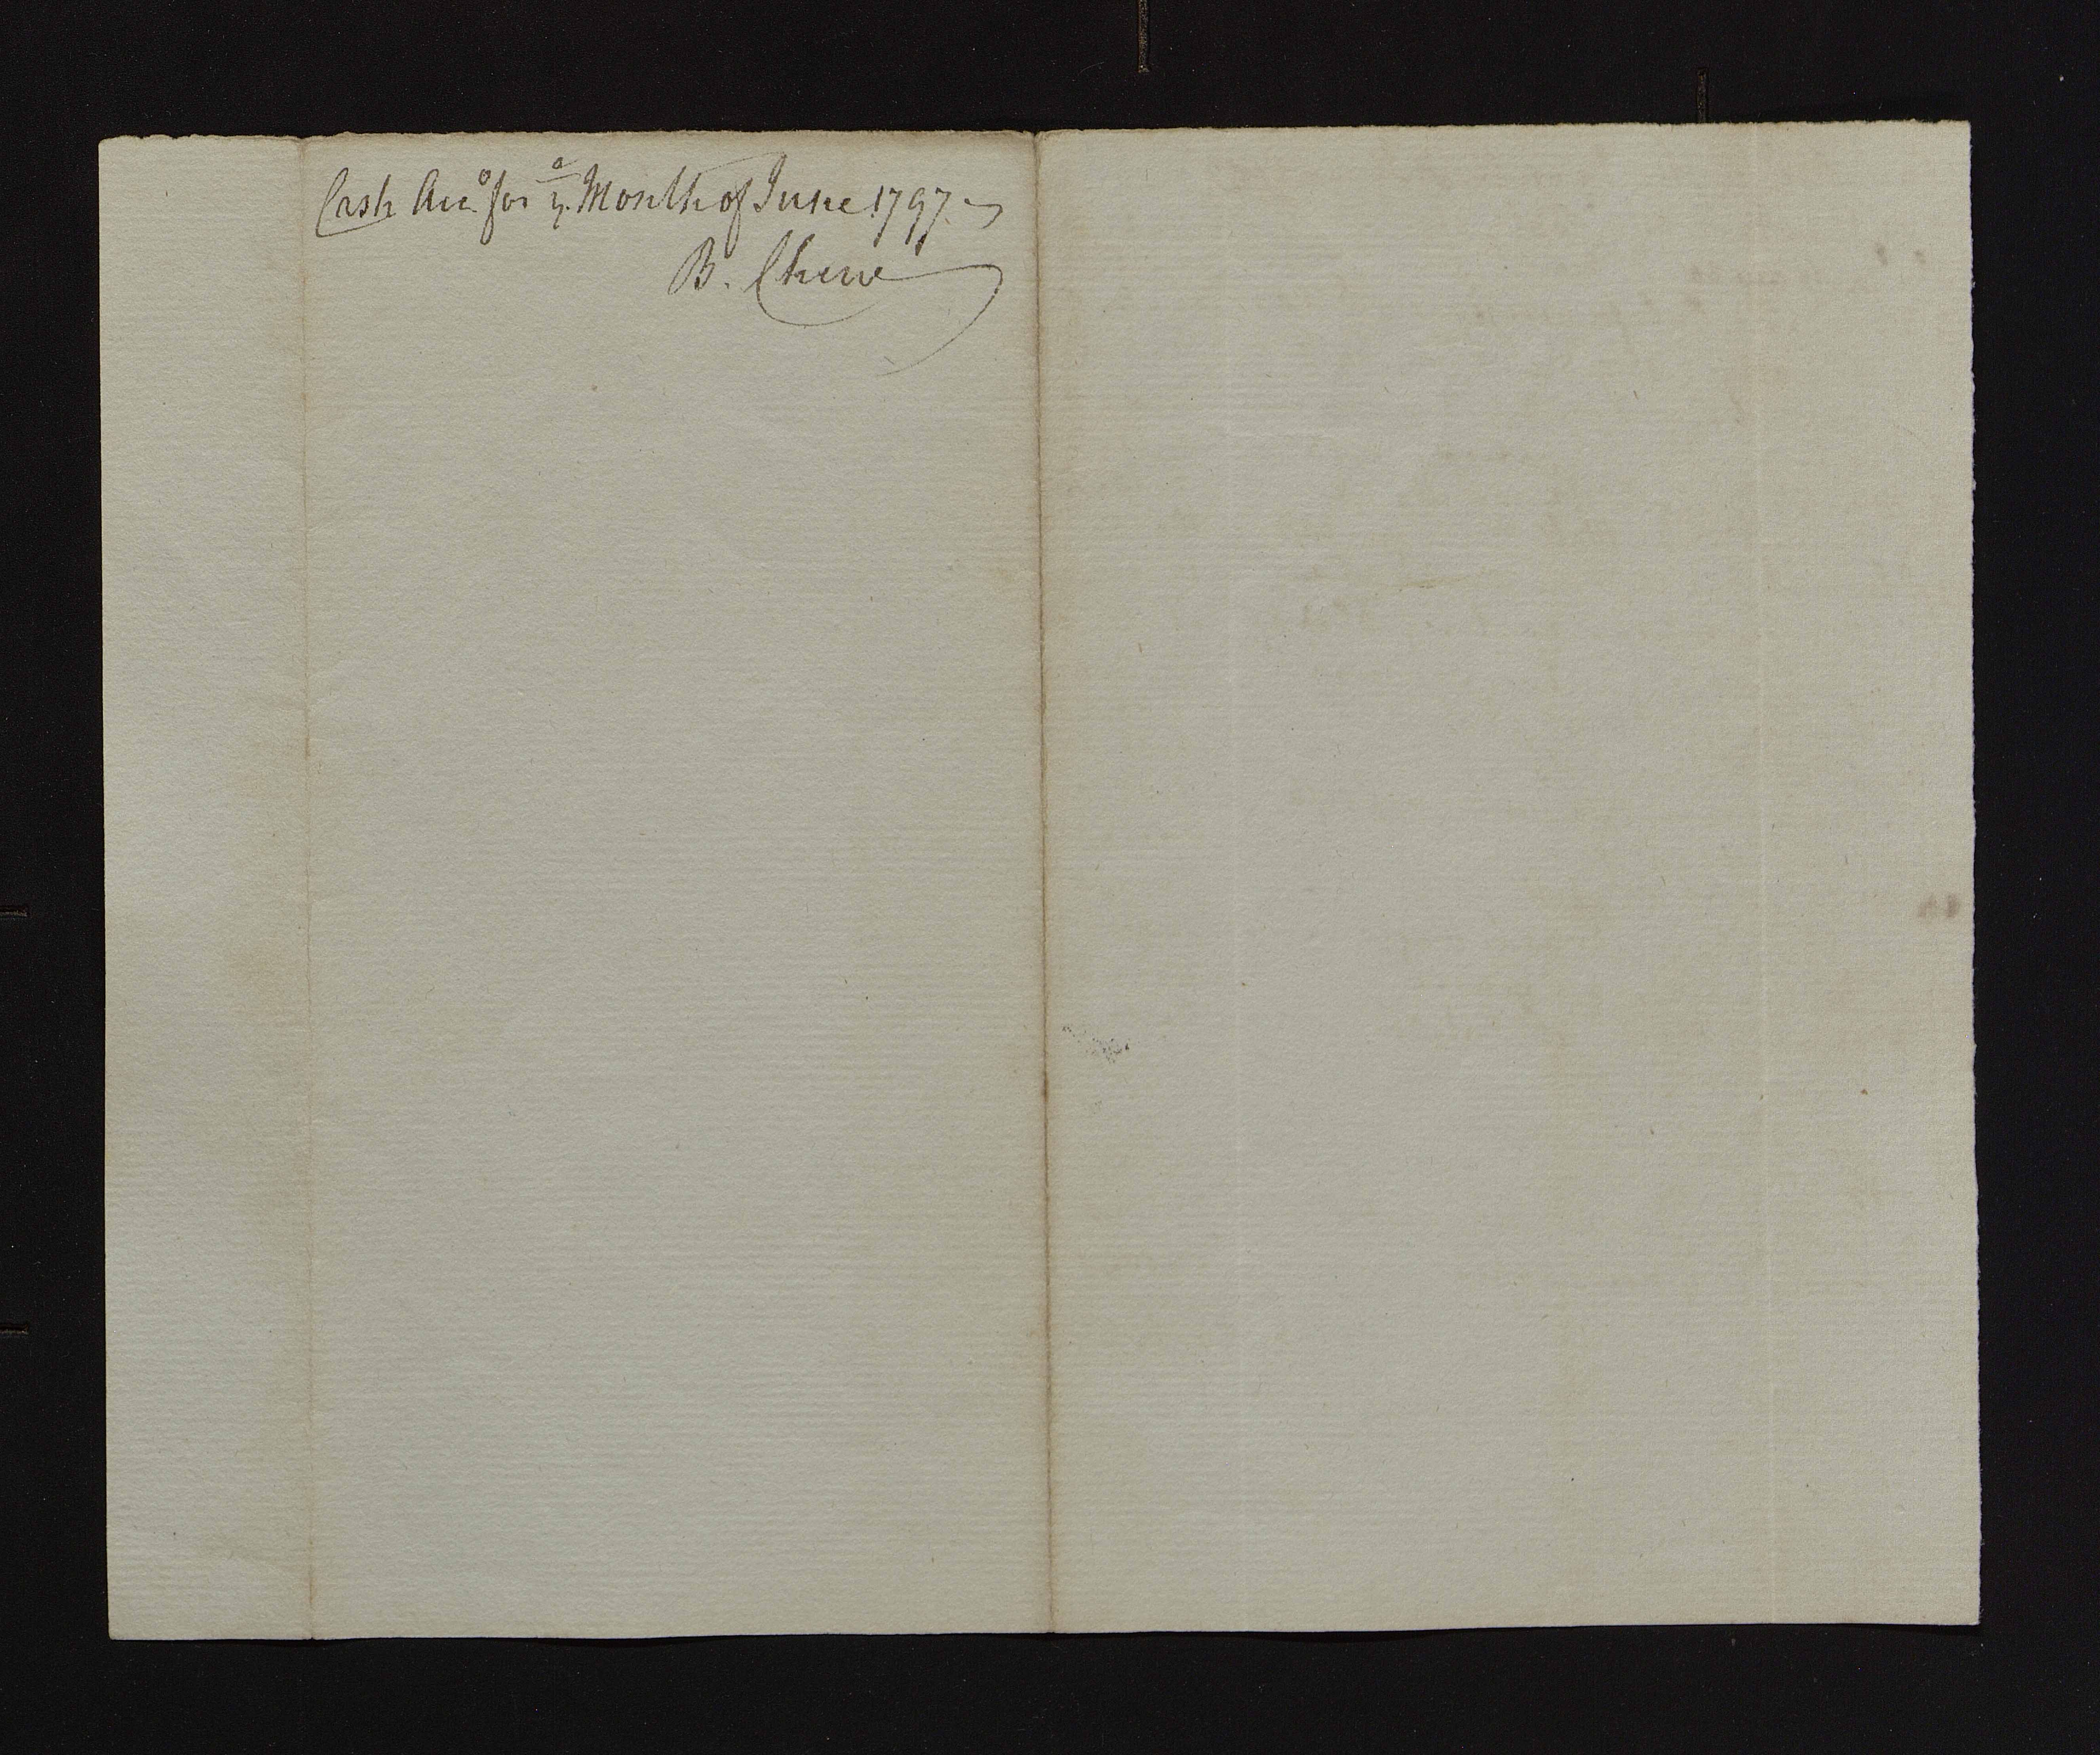 Cash Acc.º for yᵉ Month of June 1797
B. Chew